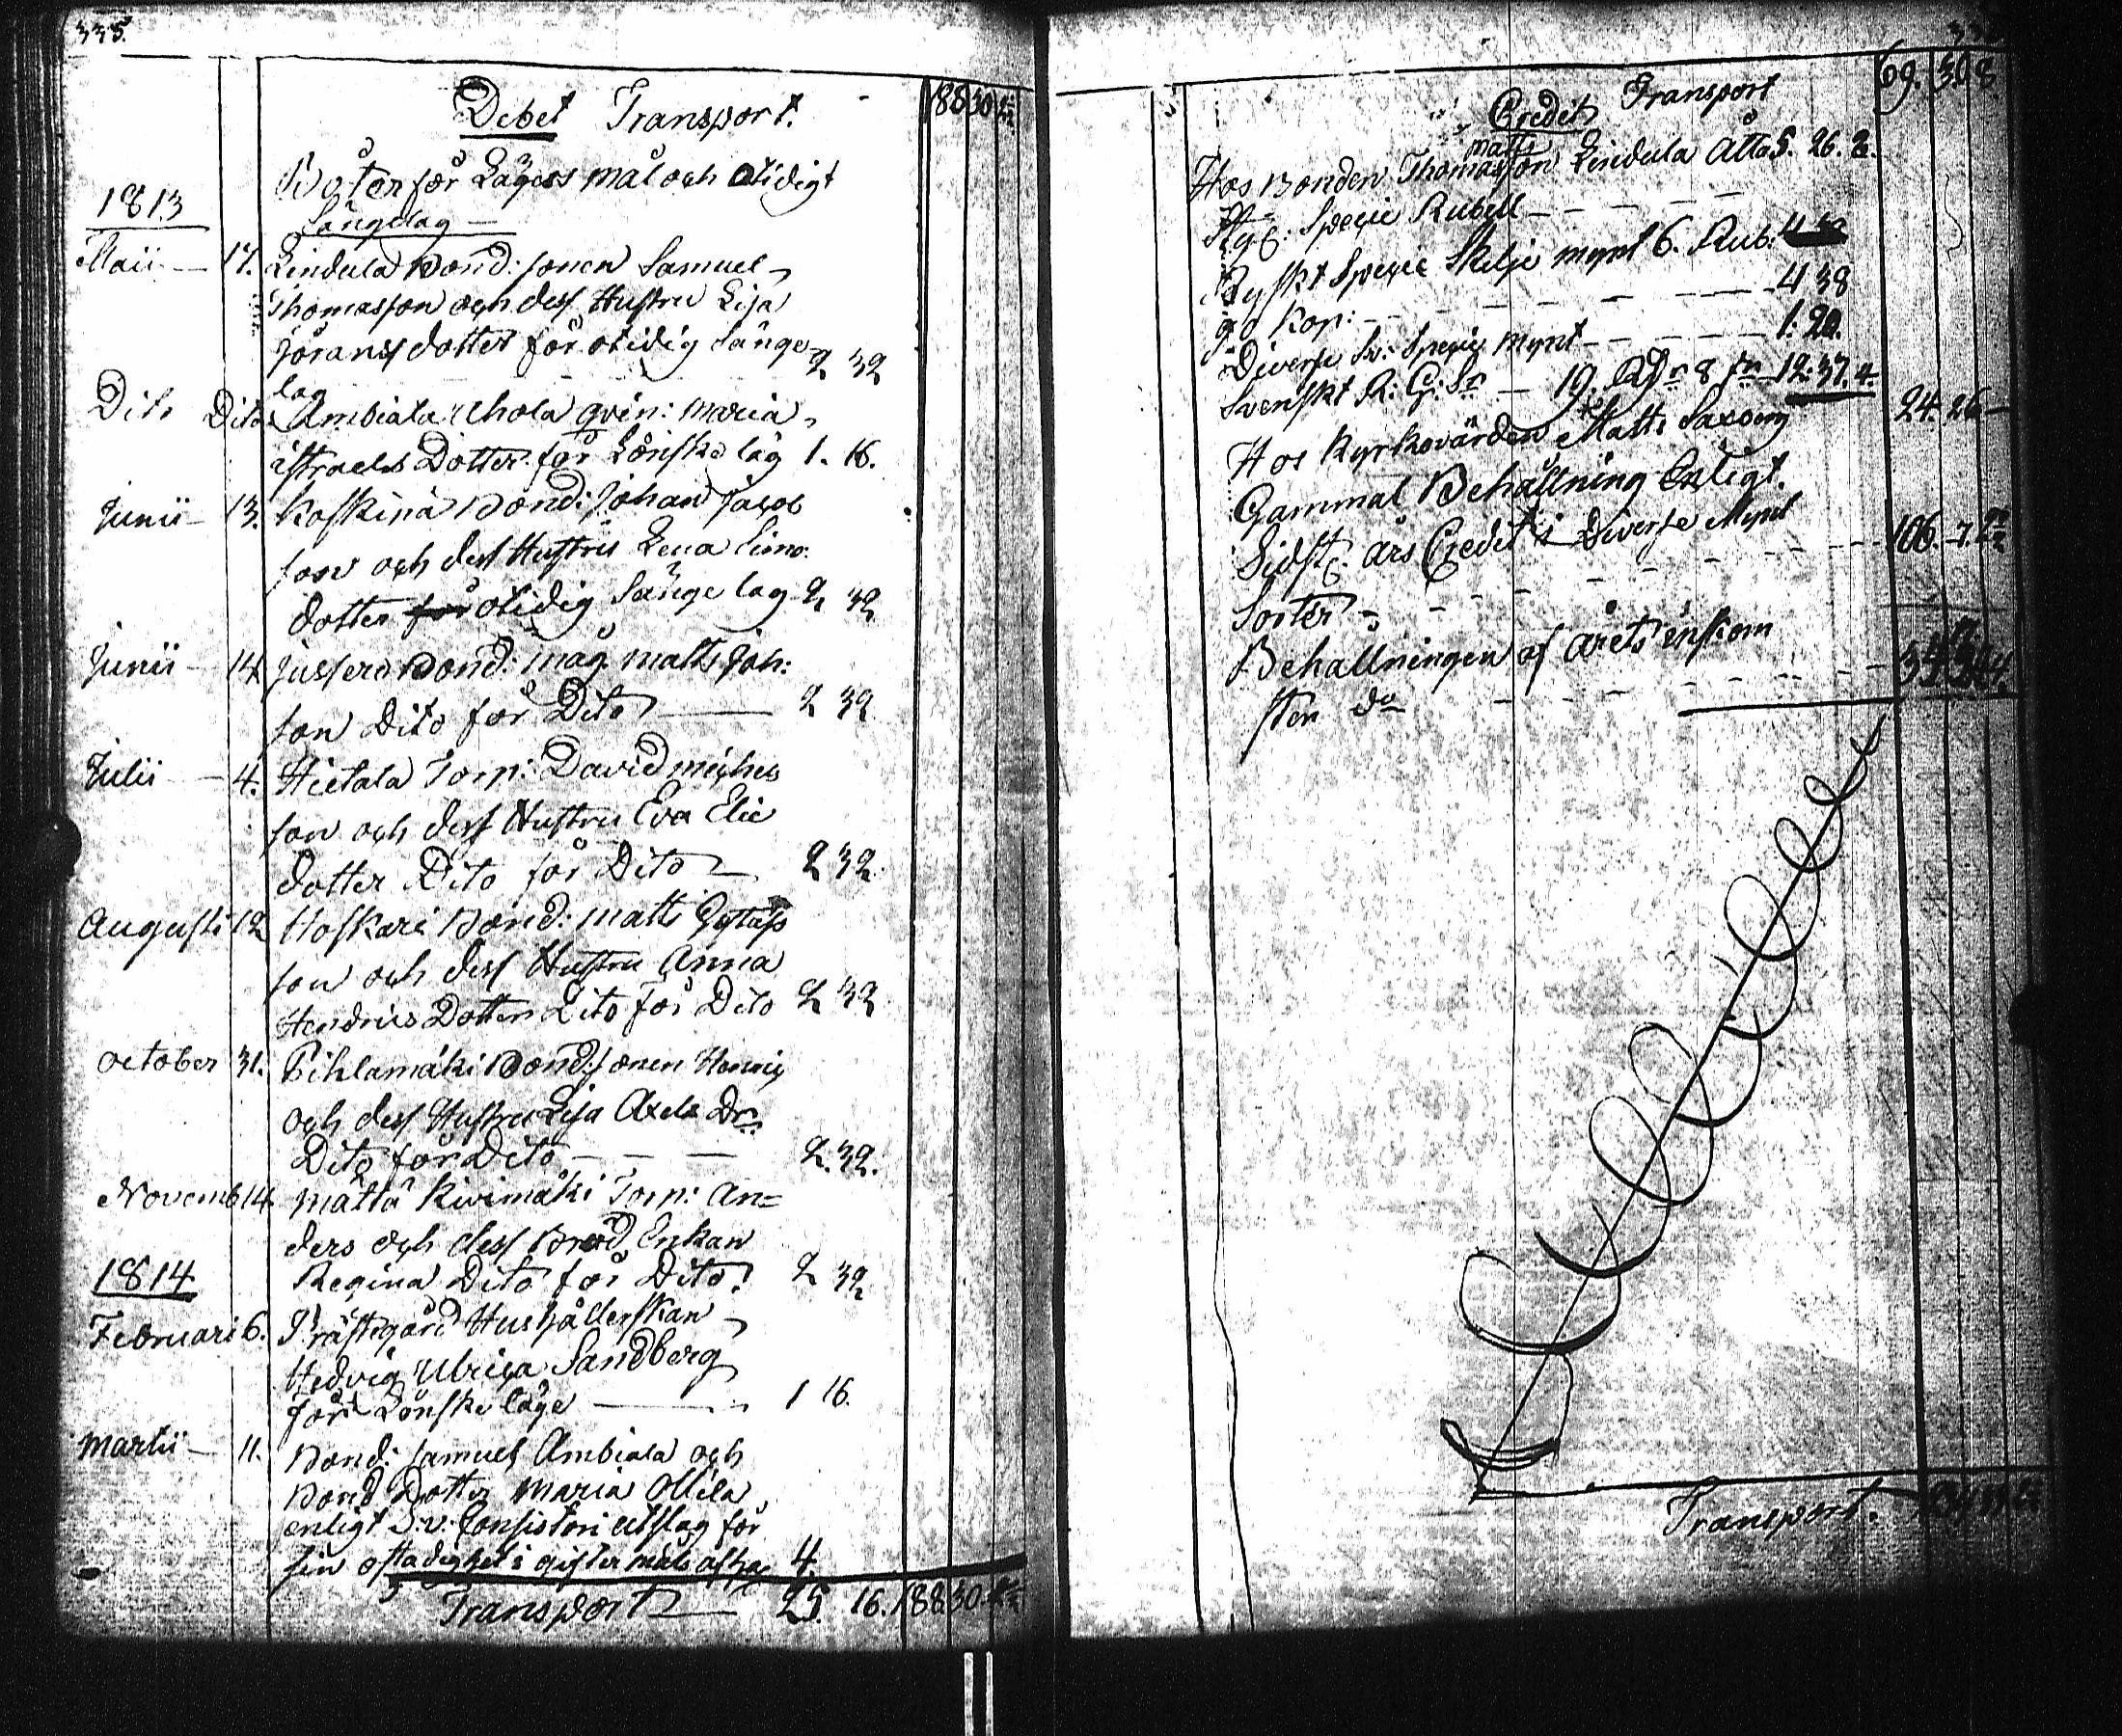 335.
Debet Transport. 188 30
Böter för Lägers mål och otidigt
Sängelag
1813
Maii 17. Lindula Bond: sonen Samuel
Thomasson och dess Hustru Lisa
Jörans dotter för otidig Sänge
lag 2 32
Dito Dito Ambiala Inhola qvin: Maria
Israels Dotter för Lönske läg 1. 16.
Junii 13. Koskina Bond: Johan Jacob
son och dess Hustru Lena Simo:
dotter för otidig Sänge lag 2 32
Junii 14. Jussera Bond: måg Matts Joh:
son Dito för Dito 2 32
Julii 4. Hietala Torp: David Miche
son och dess Hustru Eva Elie
dotter Dito för Dito 2 32
Augusti 12 Hoskari Bond: Matts Gustafs
son och dess Hustru Anna
Hendrics Dotter Dito för Dito 2 32
October 31. Pihlamäki Bond: sonen Henric
och dess Hustru Lisa Axels Dr
Dito för Dito 2. 32.
Novemb 14. Mattä Kivimäki Torp: An=
ders och dess Bröd Enkan
Regina Dito för Dito. 2 32
1814
Februari 6. Prästegård Hushållerskan
Hedvig Ulrica Sandberg
för Lönske läge 1 16.
Martii 11. Bond: Samuel Ambiala och
Bond Dotter Maria Ollila
enligt Consistorii utslag för
sin ostadighet i gifter måls 4.
Transport 25. 16. 188 30
Credit Transport 69. 30. 8.
Hos Bonden Matts Thomasson Lindula Åtta 5. 26. 8.
Specie Rubell
Ryskt Specie Skilje mynt 6. Rub:
90 Kop: 4 38
Diverse Sv: Specie mynt 1. 20.
Svenskt R: G: 19. 8 12. 37. 4.
24. 26
Hos Kyrkovärden Matts Saxberg
Gammal Behållning Enligt.
Sidst: års Credit i Diverse Mynt
Sorter 106. 7.
Behållningen af årets inkom
sten do
Transport.